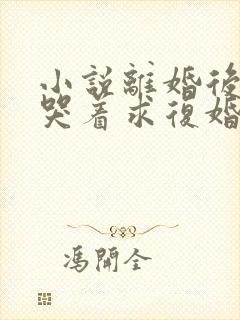 小說離婚後
哭着求復婚
馮開全